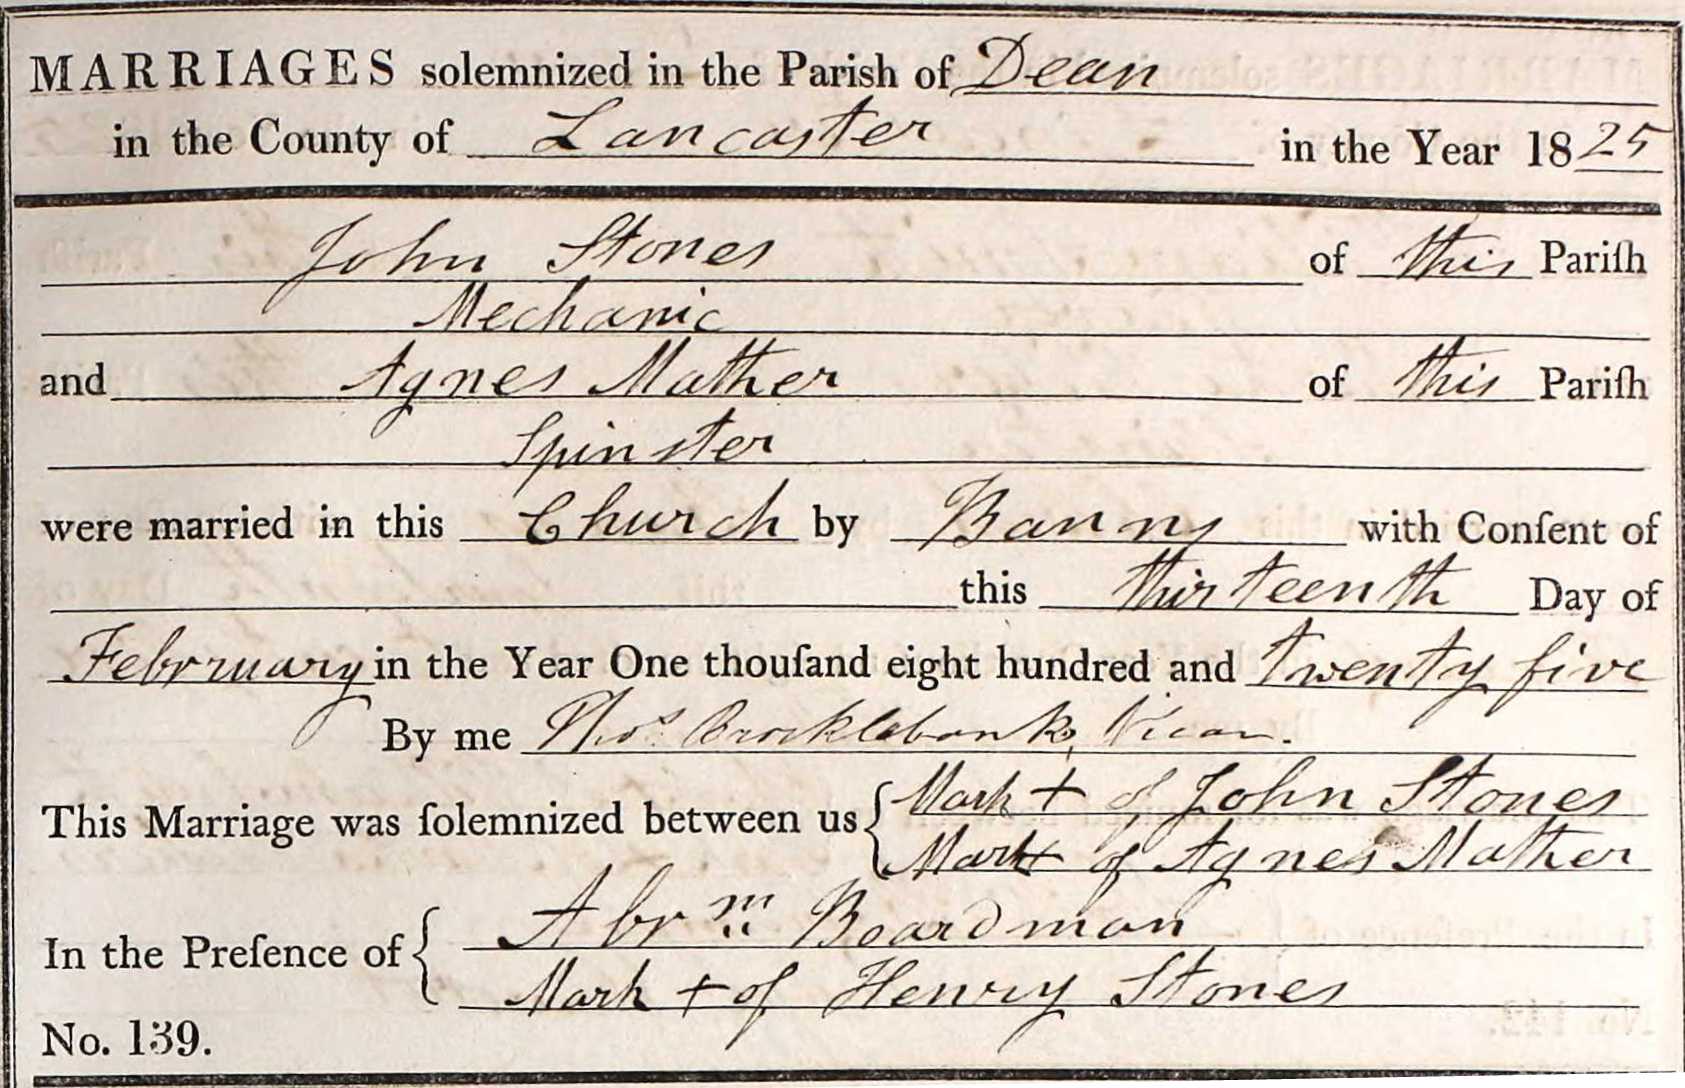 MARRIAGES solemnized in the Parish of Dean
in the County of Lancaster in the Year 1825
John Stones of this Pariſh
Mechanic
and Agnes Mather of this Pariſh
Spinster
were married in this Church by Banns with Conſent of
this thirteenth Day of
February in the Year One thouſand eight hundred and twenty five
By me Thos. Brocklebank, Vicar.
This Marriage was ſolemnized between us { Mark + of John Stones
Mark + of Agnes Mather
In the Preſence of { Abrm. Boardman
Mark + of Henry Stones
No. 139.